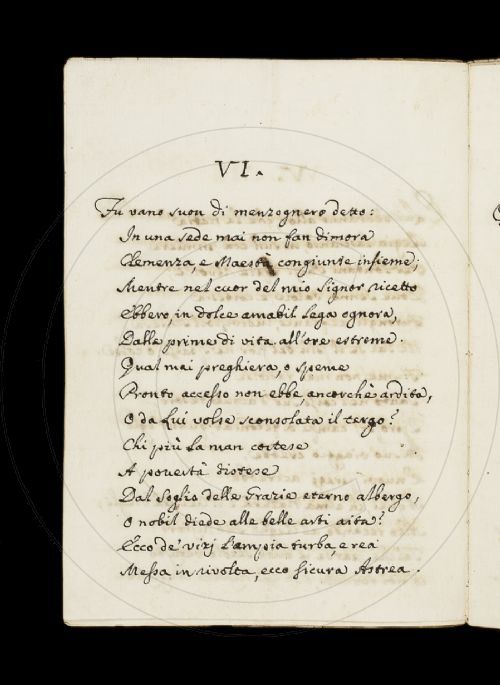 VI.
Fu vano suon di menzognero detto:
In una sede mai non fan dimora
Clemenza, e Maestà congiunte insieme;
Mentre nel cuor del mio Signor ricetto
Ebbero, in dolce amabil Lega ognora,
Dalle prime di vita all'ore estreme.
Qual mai preghiera, o speme
Pronto accesso non ebbe, ancorchè ardita,
O da Lui volse sconsolata il tergo?
Chi più la man cortese
A povertà distese
Dal Soglio delle Grazie eterno albergo,
O nobil diede alle belle arti aita?
Ecco de' vizj l'ampia turba, e rea
Messa in rivolta, ecco sicura Astrea.